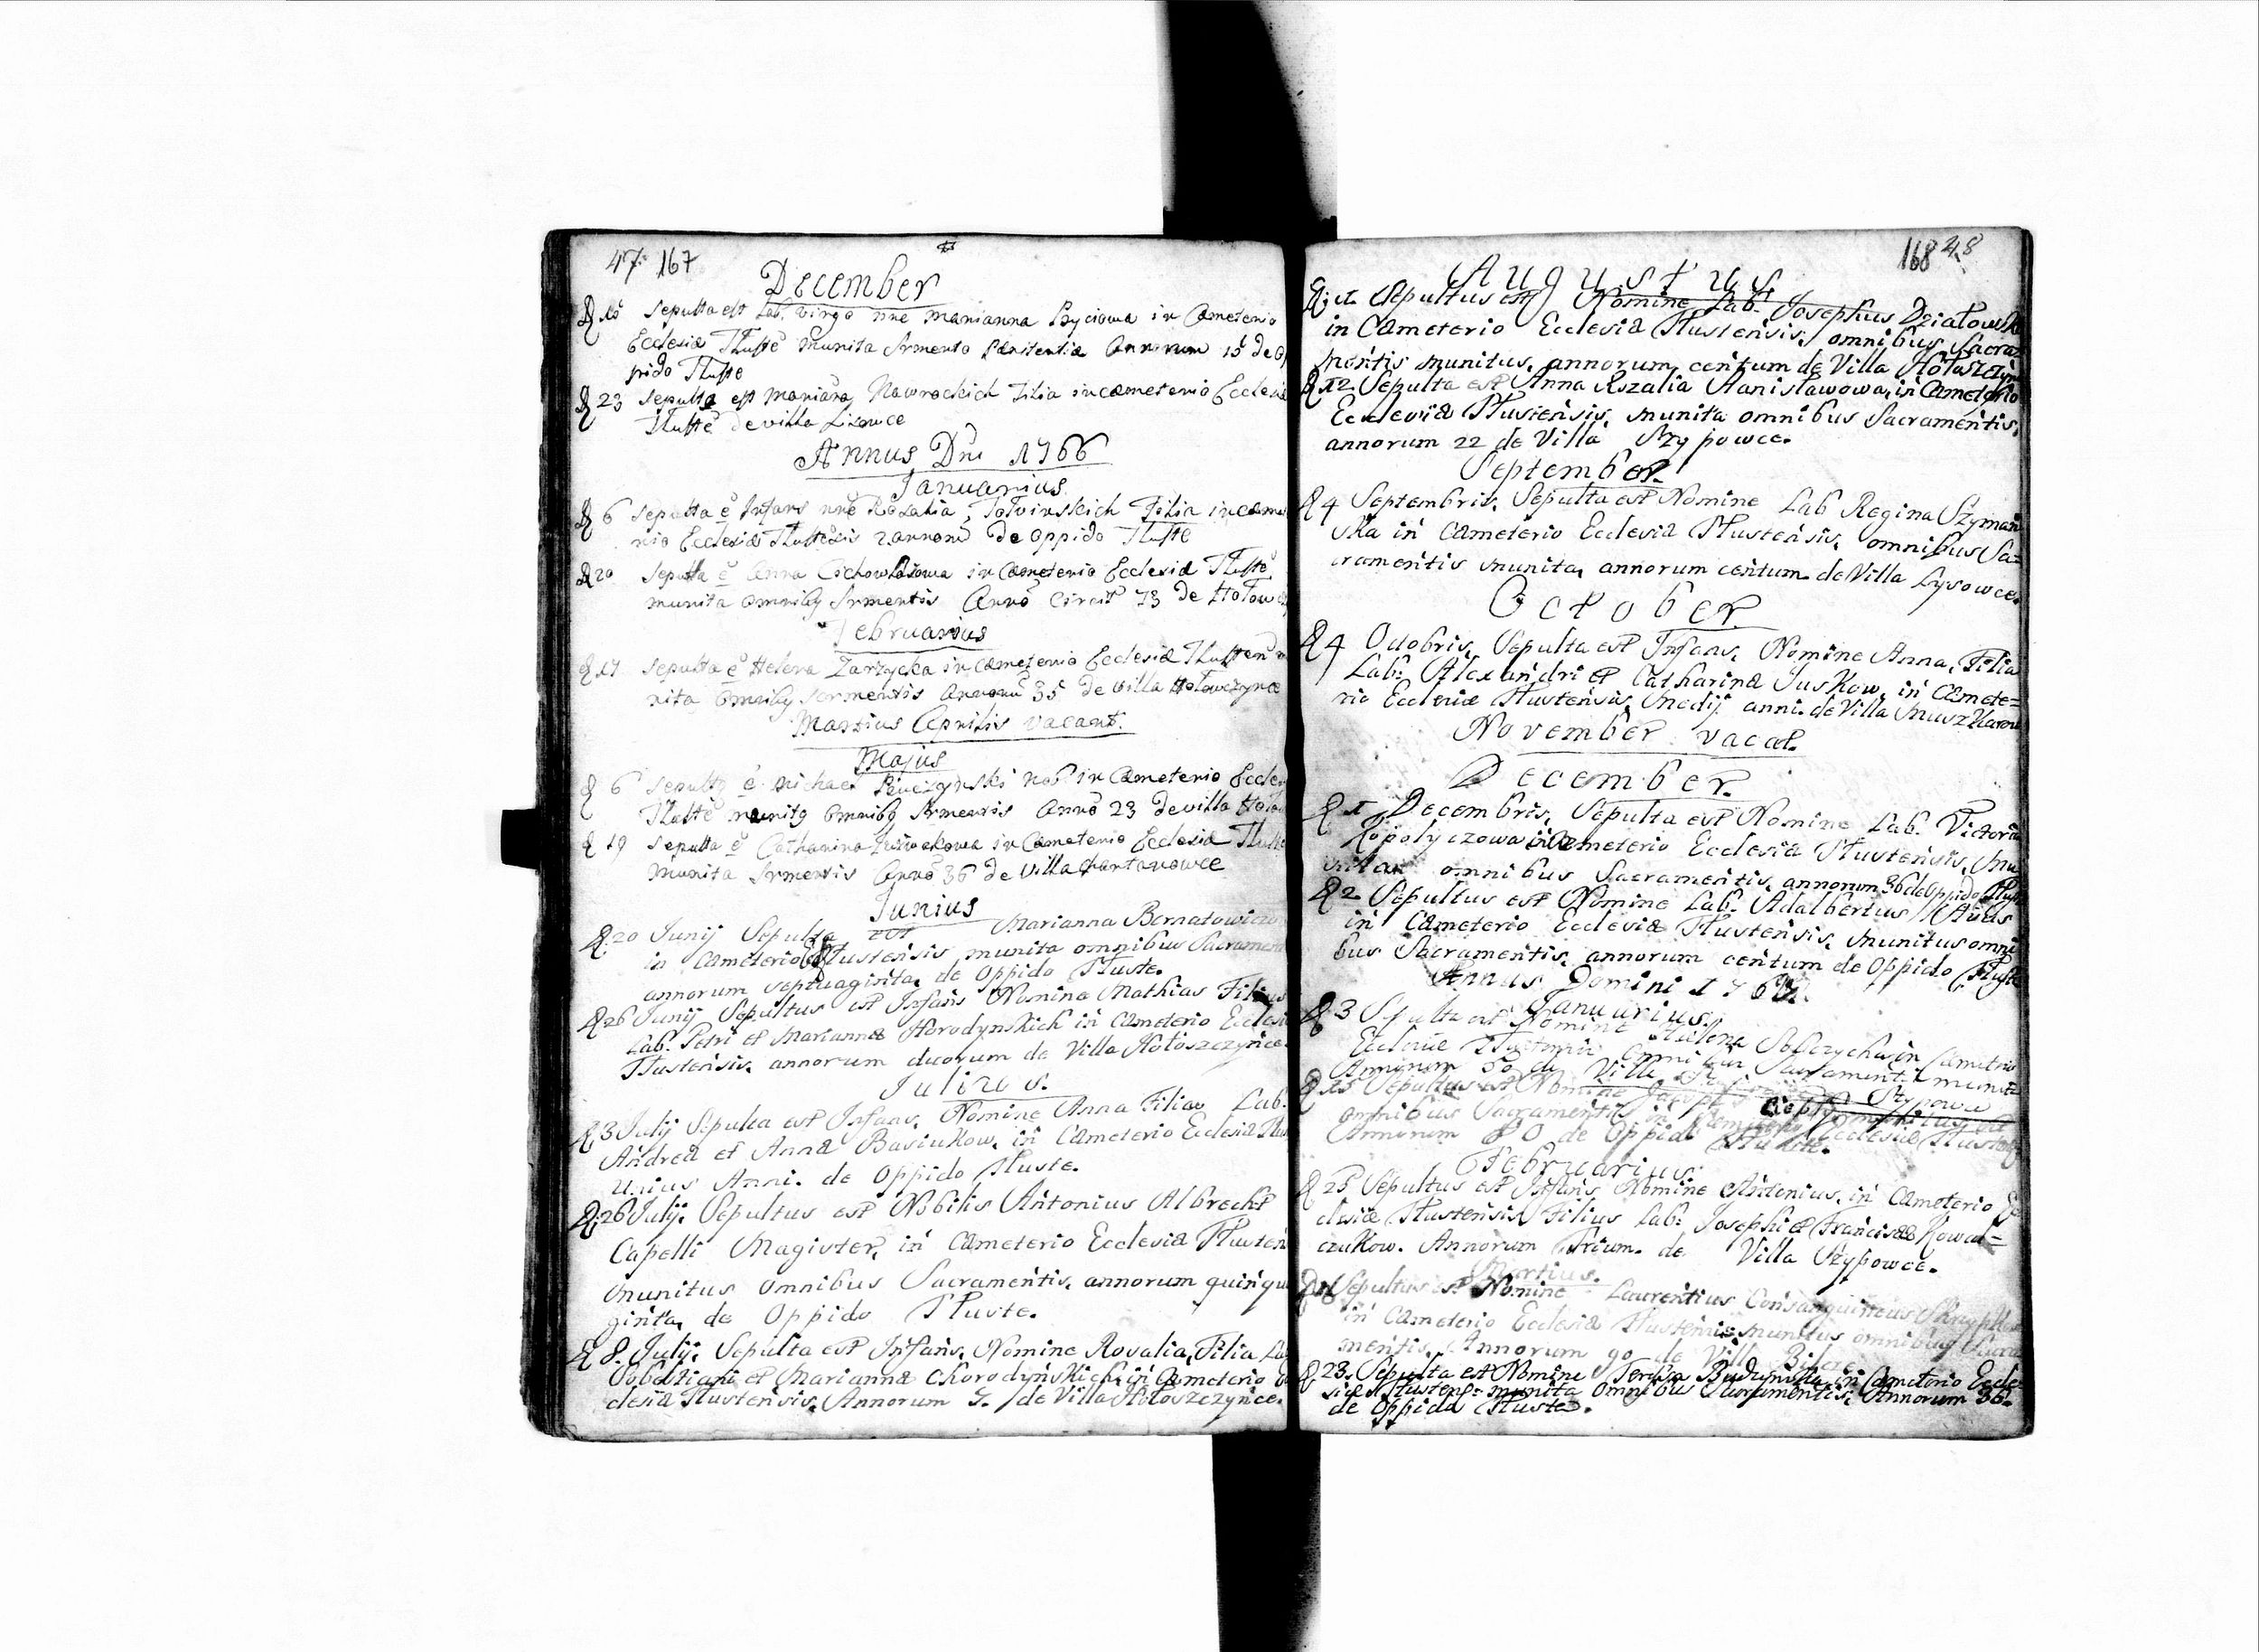 47. 167
December
D 15 Sepulta est Lab. virgo nne Marianna Byciowa in Cæmeterio
Ecclesiæ Tłuste munita Srmento Pænitentiæ Annorum 15 de Op
pido Tłuste
D 23 Sepulta est Mariana Nawrockich Filia in cæmeterio Ecclesiæ
Tłuste de villa Lisowce
Annus Dni 1766
Januarius
D 6 sepulta ē Infans nne Rozalia, Filia in cæme
rio Ecclesiæ Tłustensis 2 annorū de oppido Tłuste
D 20 Sepulta ē Anna in Cæmeterio Ecclesiæ Tłuste
munita omnibq Srmentis Annō Circit 73 de Hołow
Februarius
D 17 sepulta ē Helena Zarzycka in cæmeterio Ecclesiæ Tłusten
nita omnibq sermentis annorū 35 de villa Hołowczynce
Martius Aprilis vacant.
Majus
D 6 sepultq ē Michael in Cæmeterio Eccles
Tłuste munitq omnibq Srmentis Annō 23 de villa
D 19 sepulta ē Catharina in Cæmeterio Ecclesiæ Tłuste
munita Srmentis Annō 36 de villa
Junius
D. 20 Junij Sepulta est Marianna Bernatowicz
in Cæmeterio Tłustensis munita omnibus Sacramen
annorum septuaginta, de Oppido Tłuste.
D 26 Junij Sepultus est Infans Nomine Mathias Filius
Lab. Petri et Mariannæ Horodynskich in Cæmeterio Ecclesiæ
Tłustensis, annorum duorum de Villa Hołoszczyńce.
Julius.
D. 3 Julij Sepulta est Infans, Nomine Anna Filia Lab.
Andreæ et Annæ Basiukow, in Cæmeterio Ecclesiæ
Unius Anni. de Oppido Tłuste.
D. 26 Julij. Sepultus est Nobilis Antonius Albrecht
Capelli Magister, in Cæmeterio Ecclesiæ Tłusten
munitus omnibus Sacramentis, annorum quinqua
ginta, de Oppido Tłuste.
D 8. Julij. Sepulta est Infans, Nomine Rosalia, Filia
Sebastiani et Mariannæ Chorodyńskich in Cæmeterio
clesiæ Tłustensis, Annorum 7. de Villa Hołoszczyńce.
168 48
Augustus
Sepultus est Nomine Lab. Josephus Działowsk
in Cæmeterio Ecclesiæ Tłustensis, omnibus Sacra
mentis munitus, annorum centum de Villa Hołoszczyn
D 12. Sepulta est Anna Rozalia Stanisławowa, in Cæmeterio
Ecclesiæ Tłustensis, munita omnibus Sacramentis,
annorum 22 de Villa Szypowce.
September.
D 4 Septembris, Sepulta est Nomine Lab Regina Szymań
ska in Cæmeterio Ecclesiæ Tłustensis, omnibus Sa=
cramentis munita, annorum centum de Villa Lysowce.
October
D 4 Octobris, Sepulta est Infans, Nomine Anna, Filia
Lab: Alexandri et Catharinæ Juskow, in Cæmete=
rio Ecclesiæ Tłustensis, medij anni. de Villa
November vacat.
December.
D 1 Decembris, Sepulta est Nomine Lab. Victoria
in Cæmeterio Ecclesiæ Tłustensis, mu
nita omnibus Sacramentis, annorum 36 de Oppido
D 2 Sepultus est Nomine Lab. Adalbertus
in Cæmeterio Ecclesiæ Tłustensis, munitus omni
bus Sacramentis, annorum centum de Oppido Tłuste
Annus Domini 176
Januarius.
D 3 Sepulta est Nomine Helena in Cæmeterio
Ecclesiæ Tłustensis omnibus Sacramentis munita
Annorum 50 de Villa
D 15 Sepultus est Nomine
omnibus Sacramentis in Cæmeterio Ecclesiæ
Annorum 80 de Oppido Tłuste.
Februarius.
D 25 Sepultus est Infans Nomine Antonius, in Cæmeterio Ec
clesiæ Tłustensis Filius Lab: Josephi et Franciscæ Kowal=
czukow. Annorum Trium. de Villa Szypowce.
Martius.
Sepultus est Nomine Laurentius Consanguineus
in Cæmeterio Ecclesiæ Tłustensis munitus omnibus Sacra
mentis, Annorum 90 de Villa
D 23. Sepulta est Nomine Teresa Budzynska in Cæmeterio Eccle
siæ Tłustens: munita omnibus Sacramentis, Annorum 36.
de Oppido Tłuste.